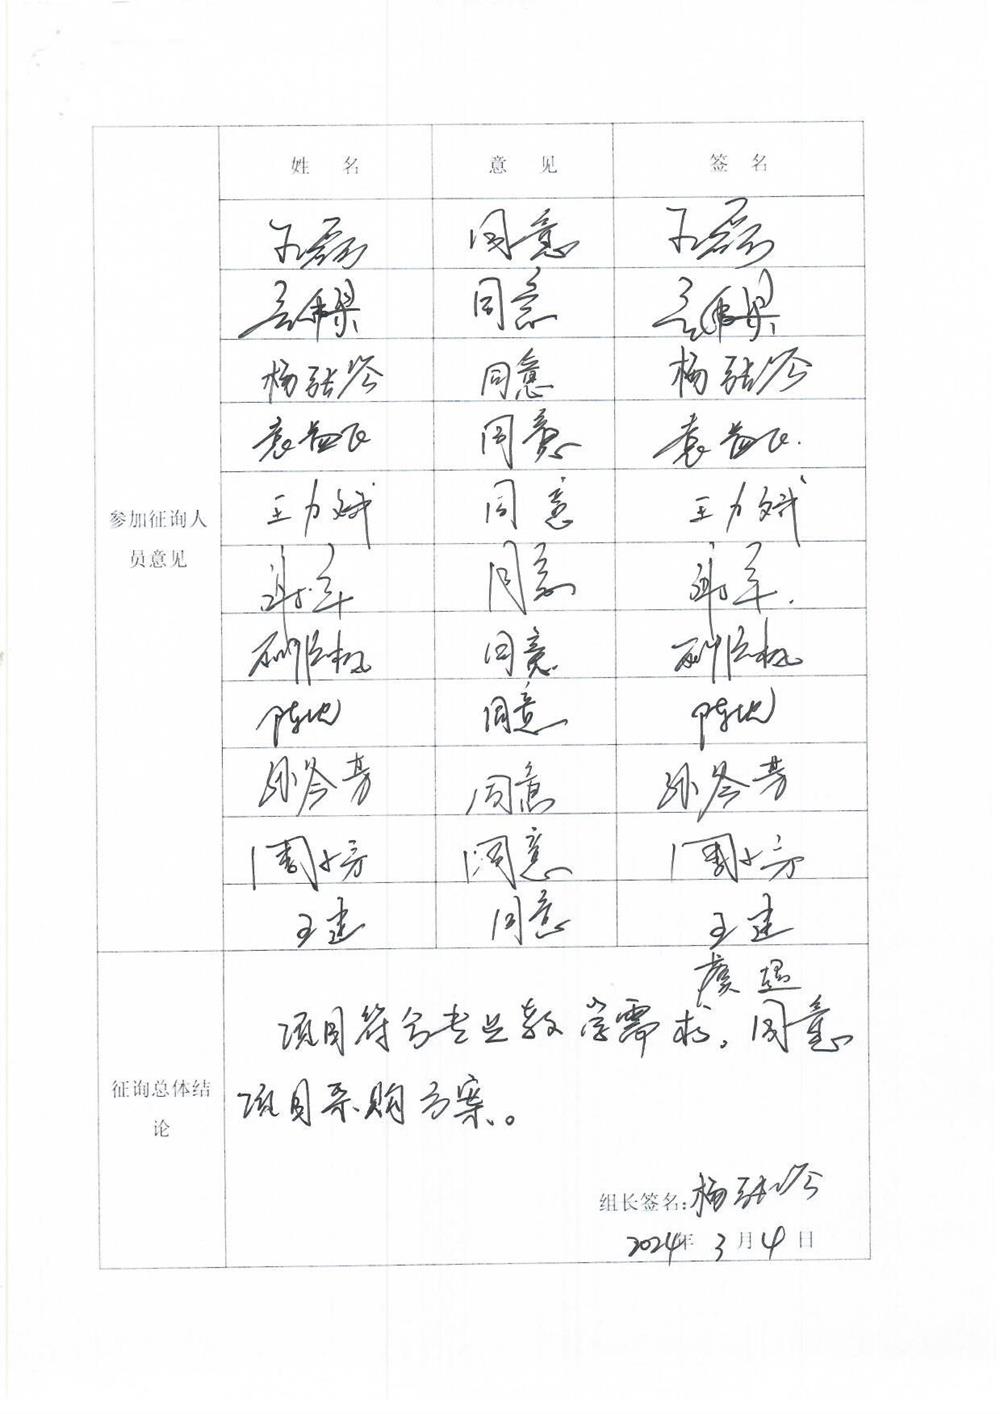 姓 名 意 见 签 名
王磊 同意 王磊
同意
杨张 同意 杨张
袁益飞 同意 袁益飞
王力斌 同意 王力斌
参加征询人
员意见
谢军 同意 谢军
同意
陈地 同意 陈地
孙琴芳 同意 孙琴芳
周小芳 同意 周小芳
王建 同意 王建
虞超
项目符合专业教学需求。同意
项目采购方案。
征询总体结
论
组长签名: 杨张
2024年 3 月 4 日